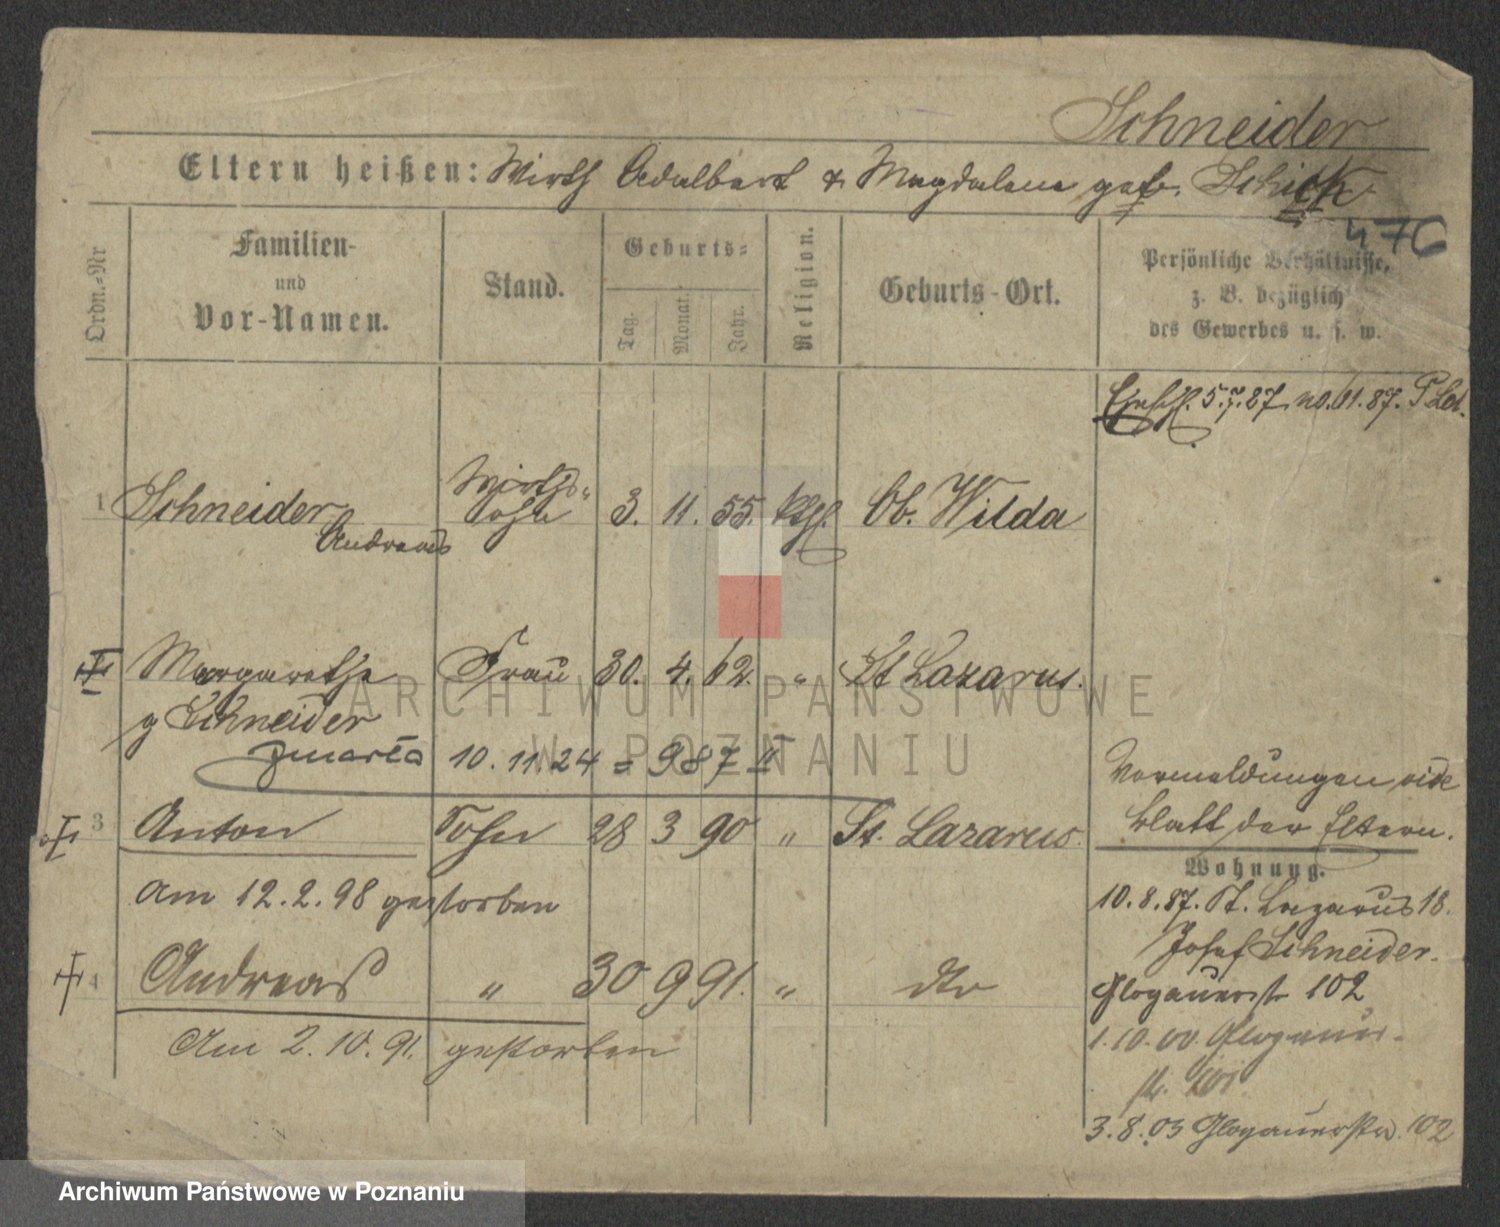 Schneider
Eltern heißen: Wirth Adalbert & Magdalena geb. Schick
476
Ordn.-Nr
Familien-
und
Vor-Namen.
Stand.
Geburts-
Tag.
Monat.
Jahr.
Religion.
Geburts-Ort.
Persönliche Verhältnisse,
z. B. bezüglich
des Gewerbes u. s. w.
5.7.87 No. 61.87.
1 Schneider Andreas Wirths- sohn 3. 11. 55. kthl. Ob. Wilda
Margarethe Frau 30. 4. 62. " St Lazarus.
g Schneider
zmarła 10.11.24 = 987 II
Vermeldungen vide
blatt der Eltern.
3 Anton Sohn 28 3 90 " St. Lazarus.
Wohnung.
am 12.2.98 gestorben
10.8.87. St. Lazarus 18.
Josef Schneider.
4 Andreas " 30 9 91. " dto
Glogauerstr 102
Am 2.10.91. gestorben
1.10.00 Glogauer-
str.
3.8.03 Glogauerstr. 102
ARCHIWUM PAŃSTWOWE
W POZNANIU
Archiwum Państwowe w Poznaniu